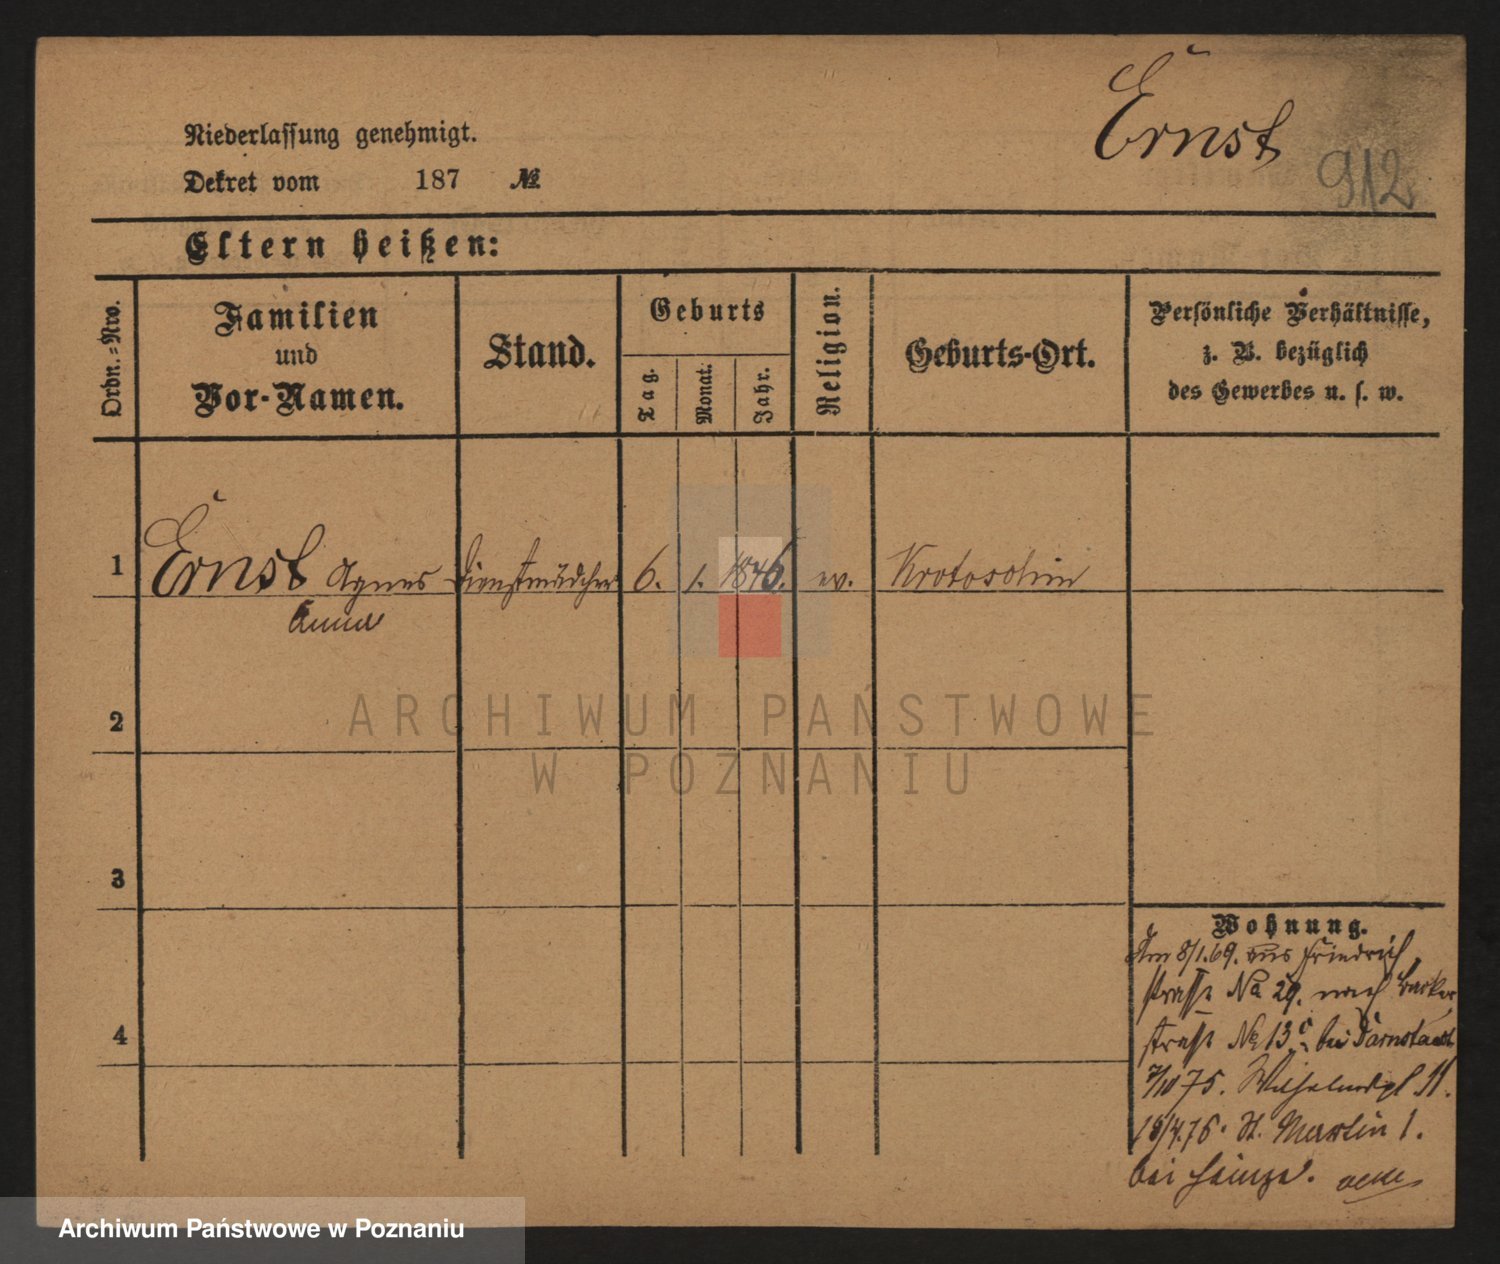 Ernst
912
Niederlassung genehmigt.
Dekret vom 187 №
Eltern heißen:
Ordn.=Nro.
Familien
und
Vor-Namen.
Stand.
Geburts
Tag.
Monat.
Jahr.
Religion.
Geburts-Ort.
Persönliche Verhältnisse,
z. B. bezüglich
des Gewerbes u. s. w.
1 Ernst Agnes Dienstmädchen 6. 1. 1846. ev. Krotoschin
Anna
2
3
4
Wohnung.
Am 8/1.69. aus Friedrich
straße No 29. nach
straße No 13 c bei
75. Wilhelmspl 11.
/4.76. St. Martin 1.
bei Heinze.
ARCHIWUM PAŃSTWOWE
W POZNANIU
Archiwum Państwowe w Poznaniu